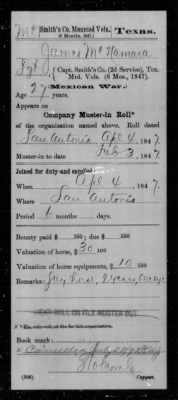 Mc Smith's Co. Mounted Vols., Texas.
(6 Months, 1847.)
James McNamara
Sgt, { Capt. Smith's Co. (2d Service), Tex. Mtd. Vols. (6 Mos., 1847).
(Mexican War.)
Age 27 years.
Appears on
Company Muster-in Roll*
of the organization named above. Roll dated
San Antonio, Apl 4, 1847.
Muster-in to date Feb 3, 1847
Joined for duty and enrolled:
When Apl 4, 1847.
Where San Antonio
Period 6 months days.
Bounty paid $ 100; due $ 100
Valuation of horse, $ 30 100
Valuation of horse equipments, $ 10 100
Remarks:
Book mark:
Holcomb
(936) Copyist.